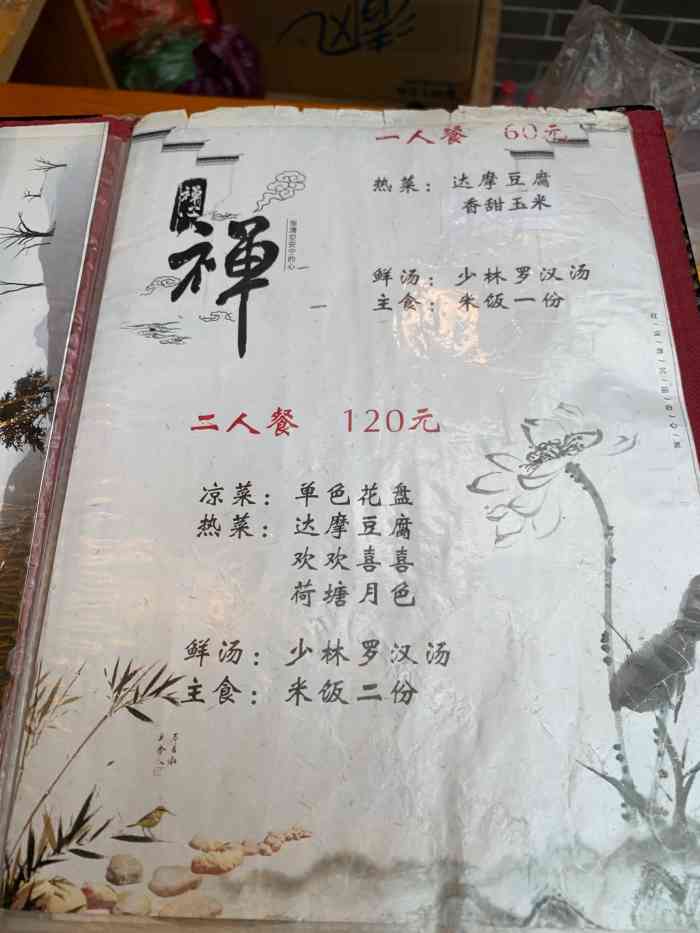 清风
一人餐 60元
热菜：达摩豆腐
香甜玉米
鲜汤：少林罗汉汤
主食：米饭一份
禅
二人餐 120元
凉菜：单色花盘
热菜：达摩豆腐
欢欢喜喜
荷塘月色
鲜汤：少林罗汉汤
主食：米饭二份